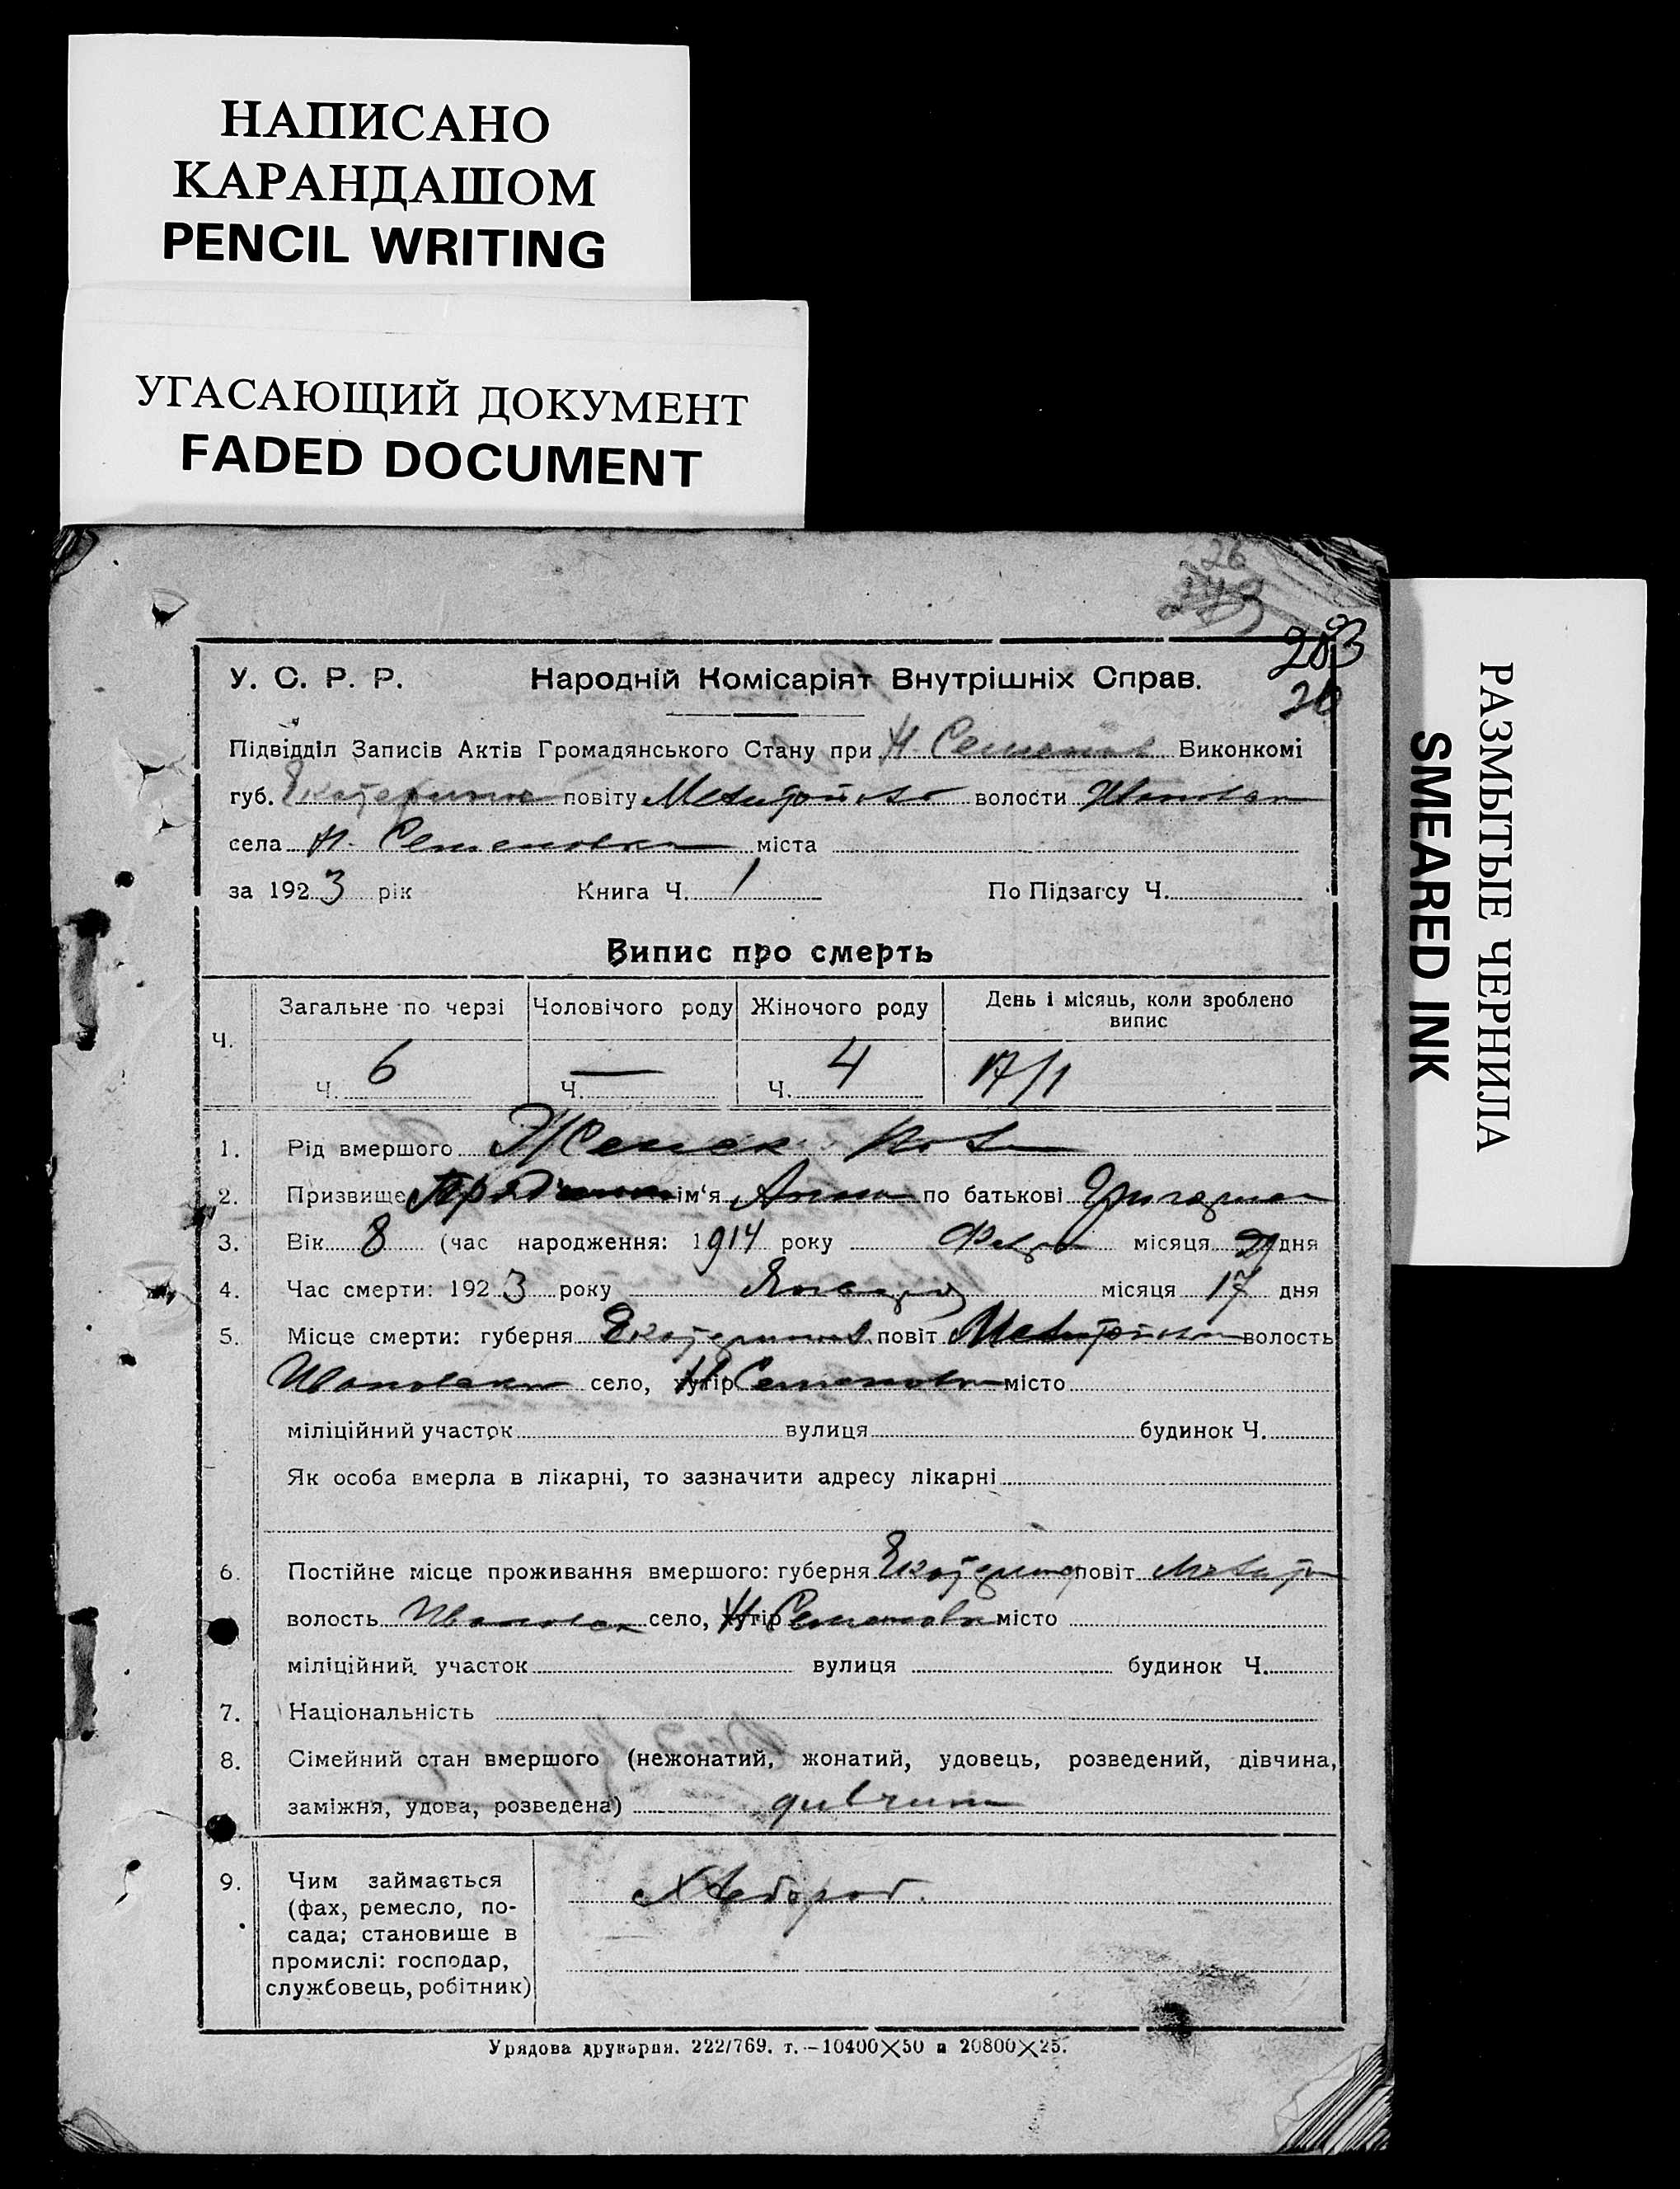 НАПИСАНО
КАРАНДАШОМ
PENCIL WRITING
УГАСАЮЩИЙ ДОКУМЕНТ
FADED DOCUMENT
РАЗМЫТЫЕ ЧЕРНИЛА
SMEARED INK
26
У. С. Р. Р. Народній Комісаріят Внутрішніх Справ.
Підвідділ Записів Актів Громадянського Стану при Н. Семенов Виконкомі
губ. Екатерин повіту Мелитопольс волости Ивановск
села Н. Семеновка міста
за 1923 рік Книга Ч. 1 По Підзагсу Ч.
Випис про смерть
Загальне по черзі Чоловічого роду Жіночого роду День і місяць, коли зроблено
випис
Ч.
Ч. 6 Ч. — Ч. 4 17/1
1. Рід вмершого Женск пол
2. Призвище ім'я Анна по батькові Григорьев
3. Вік 8 (час народження: 1914 року Февр місяця дня
4. Час смерти: 1923 року Января місяця 17 дня
5. Місце смерти: губерня Екатеринос повіт Мелитопольс волость
Ивановска село, хутір Н Семеновка місто
міліційний участок вулиця будинок Ч.
Як особа вмерла в лікарні, то зазначити адресу лікарні
6. Постійне місце проживання вмершого: губерня Екатерино повіт Мелитоп
волость Ивановск село, хутір Н Семеновка місто
міліційний участок вулиця будинок Ч.
7. Національність
8. Сімейний стан вмершого (нежонатий, жонатий, удовець, розведений, дівчина,
заміжня, удова, розведена) дивчина
9. Чим займається Хлебороб.
(фах, ремесло, по-
сада; становище в
промислі: господар,
службовець, робітник)
Урядова друкарня. 222/769. т.—10400×50 и 20800×25.